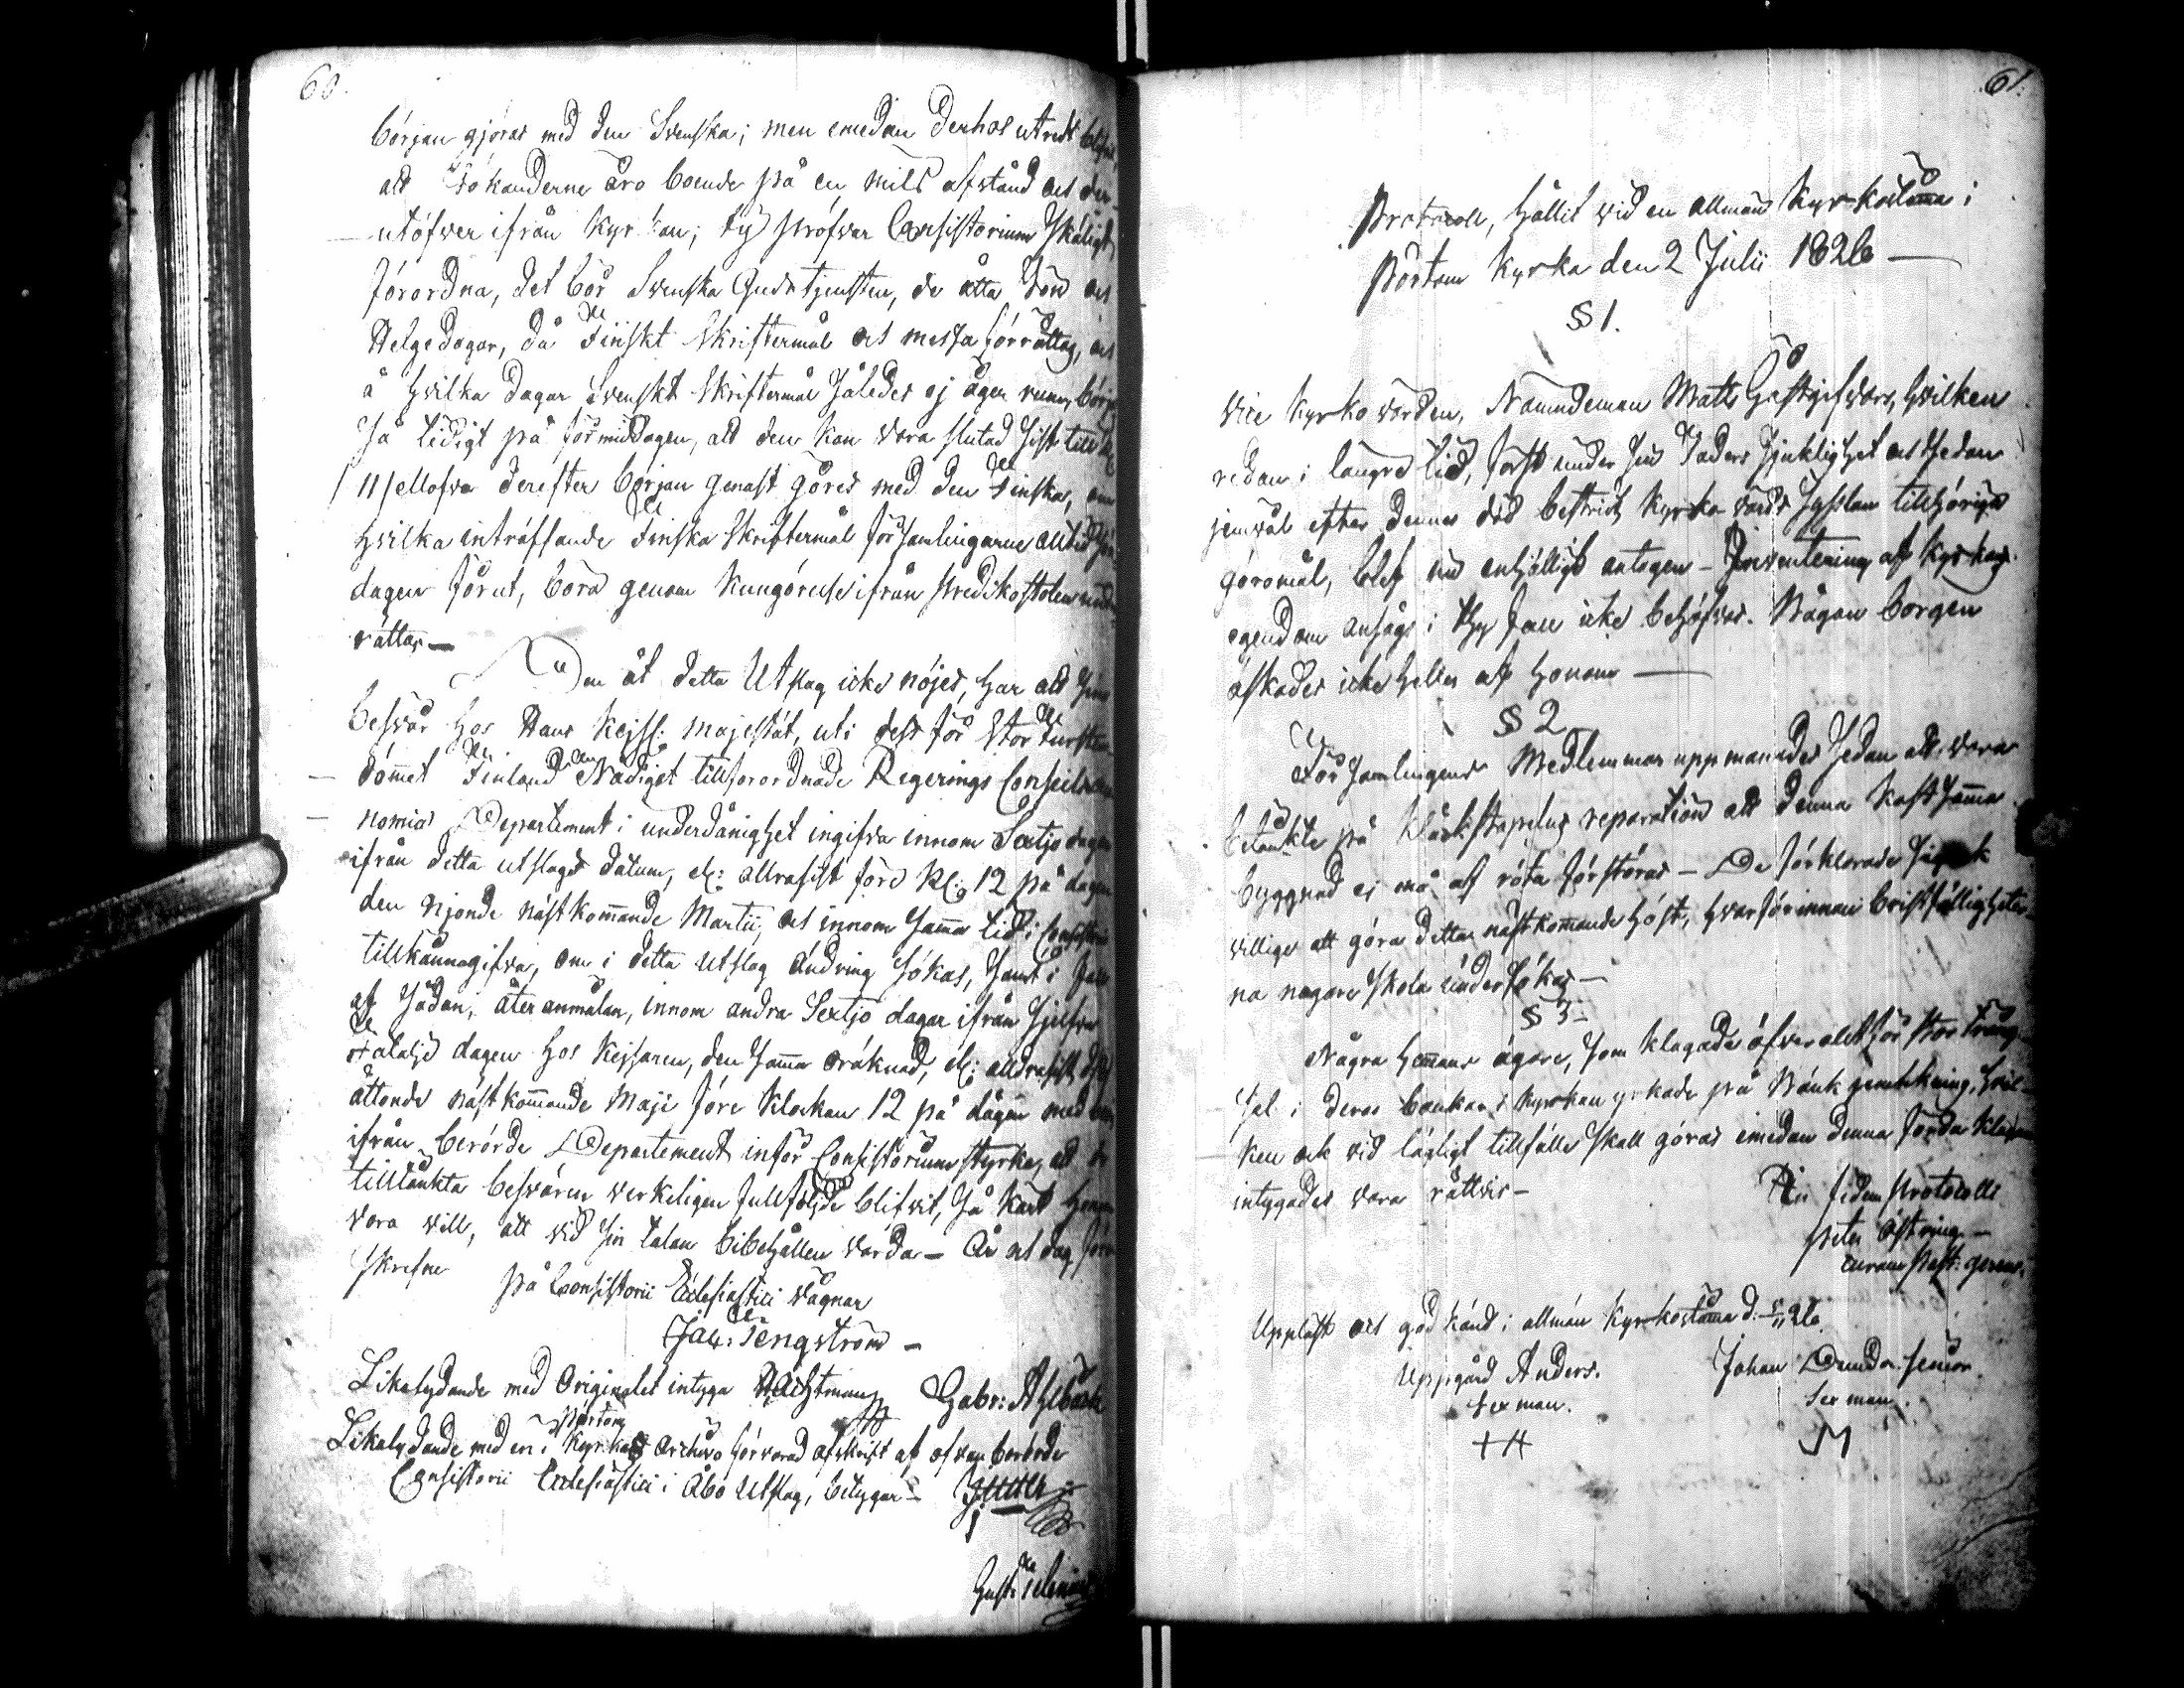 60.
början gjöras med den Svenska; men emedan derhos utredt
att Sökanderne äro boende på en mils afstånd och der-
utöfver ifrån Kyrkan; ty pröfvar Consistorium skäligt
förordna, det bör Svenska Gudstjensten, de åtta Sön och
Helgedagar, då Finskt Skriftermål och messa förrättas, och
å hvilka dagar Svenskt Skriftermål således ej äger rum, börjas
så tidigt på förmiddagen, att den kan vara slutad sist till
/11/ ellofva derefter början genast göres med den Finska, om
hvilka inträffande Finska Skriftermål församlingarne alltid
dagar förut, böra genom kungörelse ifrån Predikostolen under-
rättas —
Den åt detta Utslag icke nöjes, har att sina
besvär hos Hans Kejsl: Majestät, uti dess för Stor Fursten-
dömet Finland Nådigst tillförordnade Regerings Conseils
nomie Departement i underdånighet ingifva innom Sextjo dagar
ifrån detta utslags datum, el: allrasist före Kl: 12 på dagen
den njonde nästkommande Martii, och innom samma tid i Consistorio
tillkännagifva, om i detta Utslag ändring sökas, samt i fall
af sådan, återanmälan, innom andra Sextjo dagar ifrån sjelfva
Fatalje dagen hos Kejsaren, den samma oräknad, el: alldrasist den
åttonde nästkommande Maji före Klockan 12 på dagen med
ifrån berörde Departement inför Consistorium styrka, att de
tilltänkta besvären verkeligen fullföljde blifvit, så kärt honom
vara vill, att vid sin talan bibehållen varda — År och dag förr
skrefne
på Consistorii Ecclesiastici vägnar
Jac: Tengström —
Likalydande med Originalet intyga Gabr: Ahlbäck
Likalydande med en i Pörtom Kyrkas Archivo förvarad afskrift af ofvanberörde
Consistorii Ecclesiastici i Åbo Utslag, betygar —
Gust:
61.
Protocoll, hållit vid en allmän Kyrkostämma i
Pörtom Kyrka den 2 Julii 1826 —
§ 1.
Vice Kyrkovärden, Nämndeman Matts Gästgifvars, hvilken
redan i längre tid, först under sin Faders sjuklighet och sedan
jemväl efter dennes död bestridt Kyrko värds sysslan tillhöriga
göromål, blef nu enhälligt antagen — Inventering af Kyrkans
egendom ansågs i thy fall icke behöfvas. Någon borgen
äskades icke heller af honom —
§ 2
Församlingens Medlemmar uppmanades sedan att vara
betänkte på Klåckstapelns reparation att denna kostsamma
byggnad ej må af röta förstöras — De förklarade sig ock
villige att göra detta nästkommande höst, hvarförinnan bristfälligheter-
na nogare skola undersökas —
§ 3 —
Några Hemmans ägare, som klagade öfver allt för stor träng-
sel i deras bänkar i Kyrkan yrkade på Bänk jemkning, hvil-
ken ock vid lägligt tillfälle skall göras emedan denna förda klagan
intygades vara rättvis —
In fidem Protocolli
Peter Östring —
curam Past: gerens.
Uppläst och godkänd i allmän Kyrkostämma d.
Uppgård Anders. Johan Drunda senior
Sexman. Sexman.